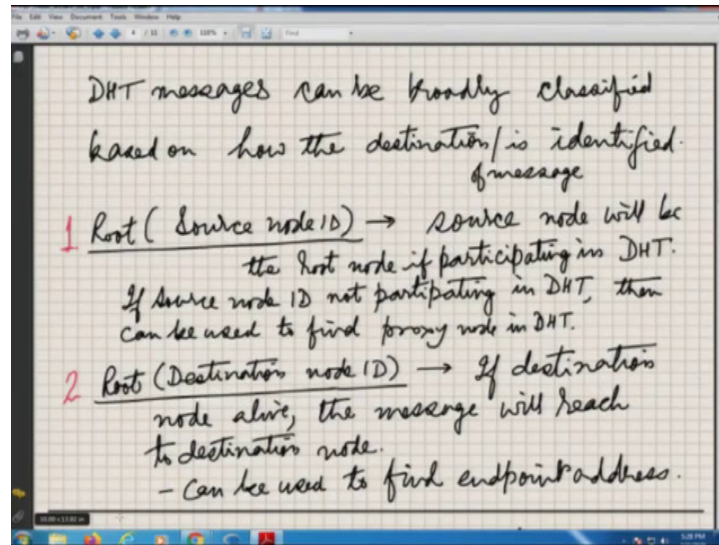 File Edit View Document Tools Window Help
4 / 11 110% Find
DHT messages can be broadly classified
based on how the destination/is identified.
of message
1 Root ( Source node ID) → source node will be
the root node if participating in DHT.
If source node ID not partipating in DHT, then
can be used to find proxy node in DHT.
2 Root (Destination node ID) → If destination
node alive, the message will reach
to destination node.
- can be used to find endpoint address.
5:28 PM